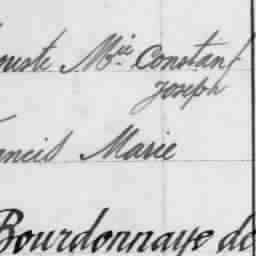 ouste M^ie Constant
Joseph
ancis Marie
Bourdonnaye de